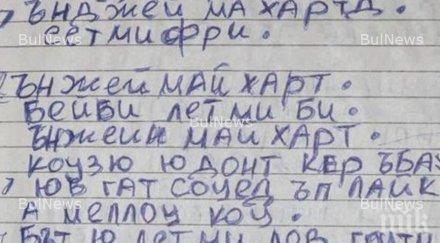 ЪНДЖЕЙ МА ХАРТД.
ЛЕТ МИ ФРИ.
ЪНЖЕЙ МАЙ ХАРТ.
БЕЙБИ ЛЕТ МИ БИ.
ЪНЖЕИН МАЙ ХАРТ.
КОУЗЮ ЮДОНТ КЕР ЪБА
ЮВ ГАТ СОУЕД ЪП ЛАЙК
А МЕЛЛОУ КОУ.
БЪТ Ю ЛЕТ МИ ЛОВ
BulNews BulNews BulNews
BulNews
BulNews BulNews BulNews
пik